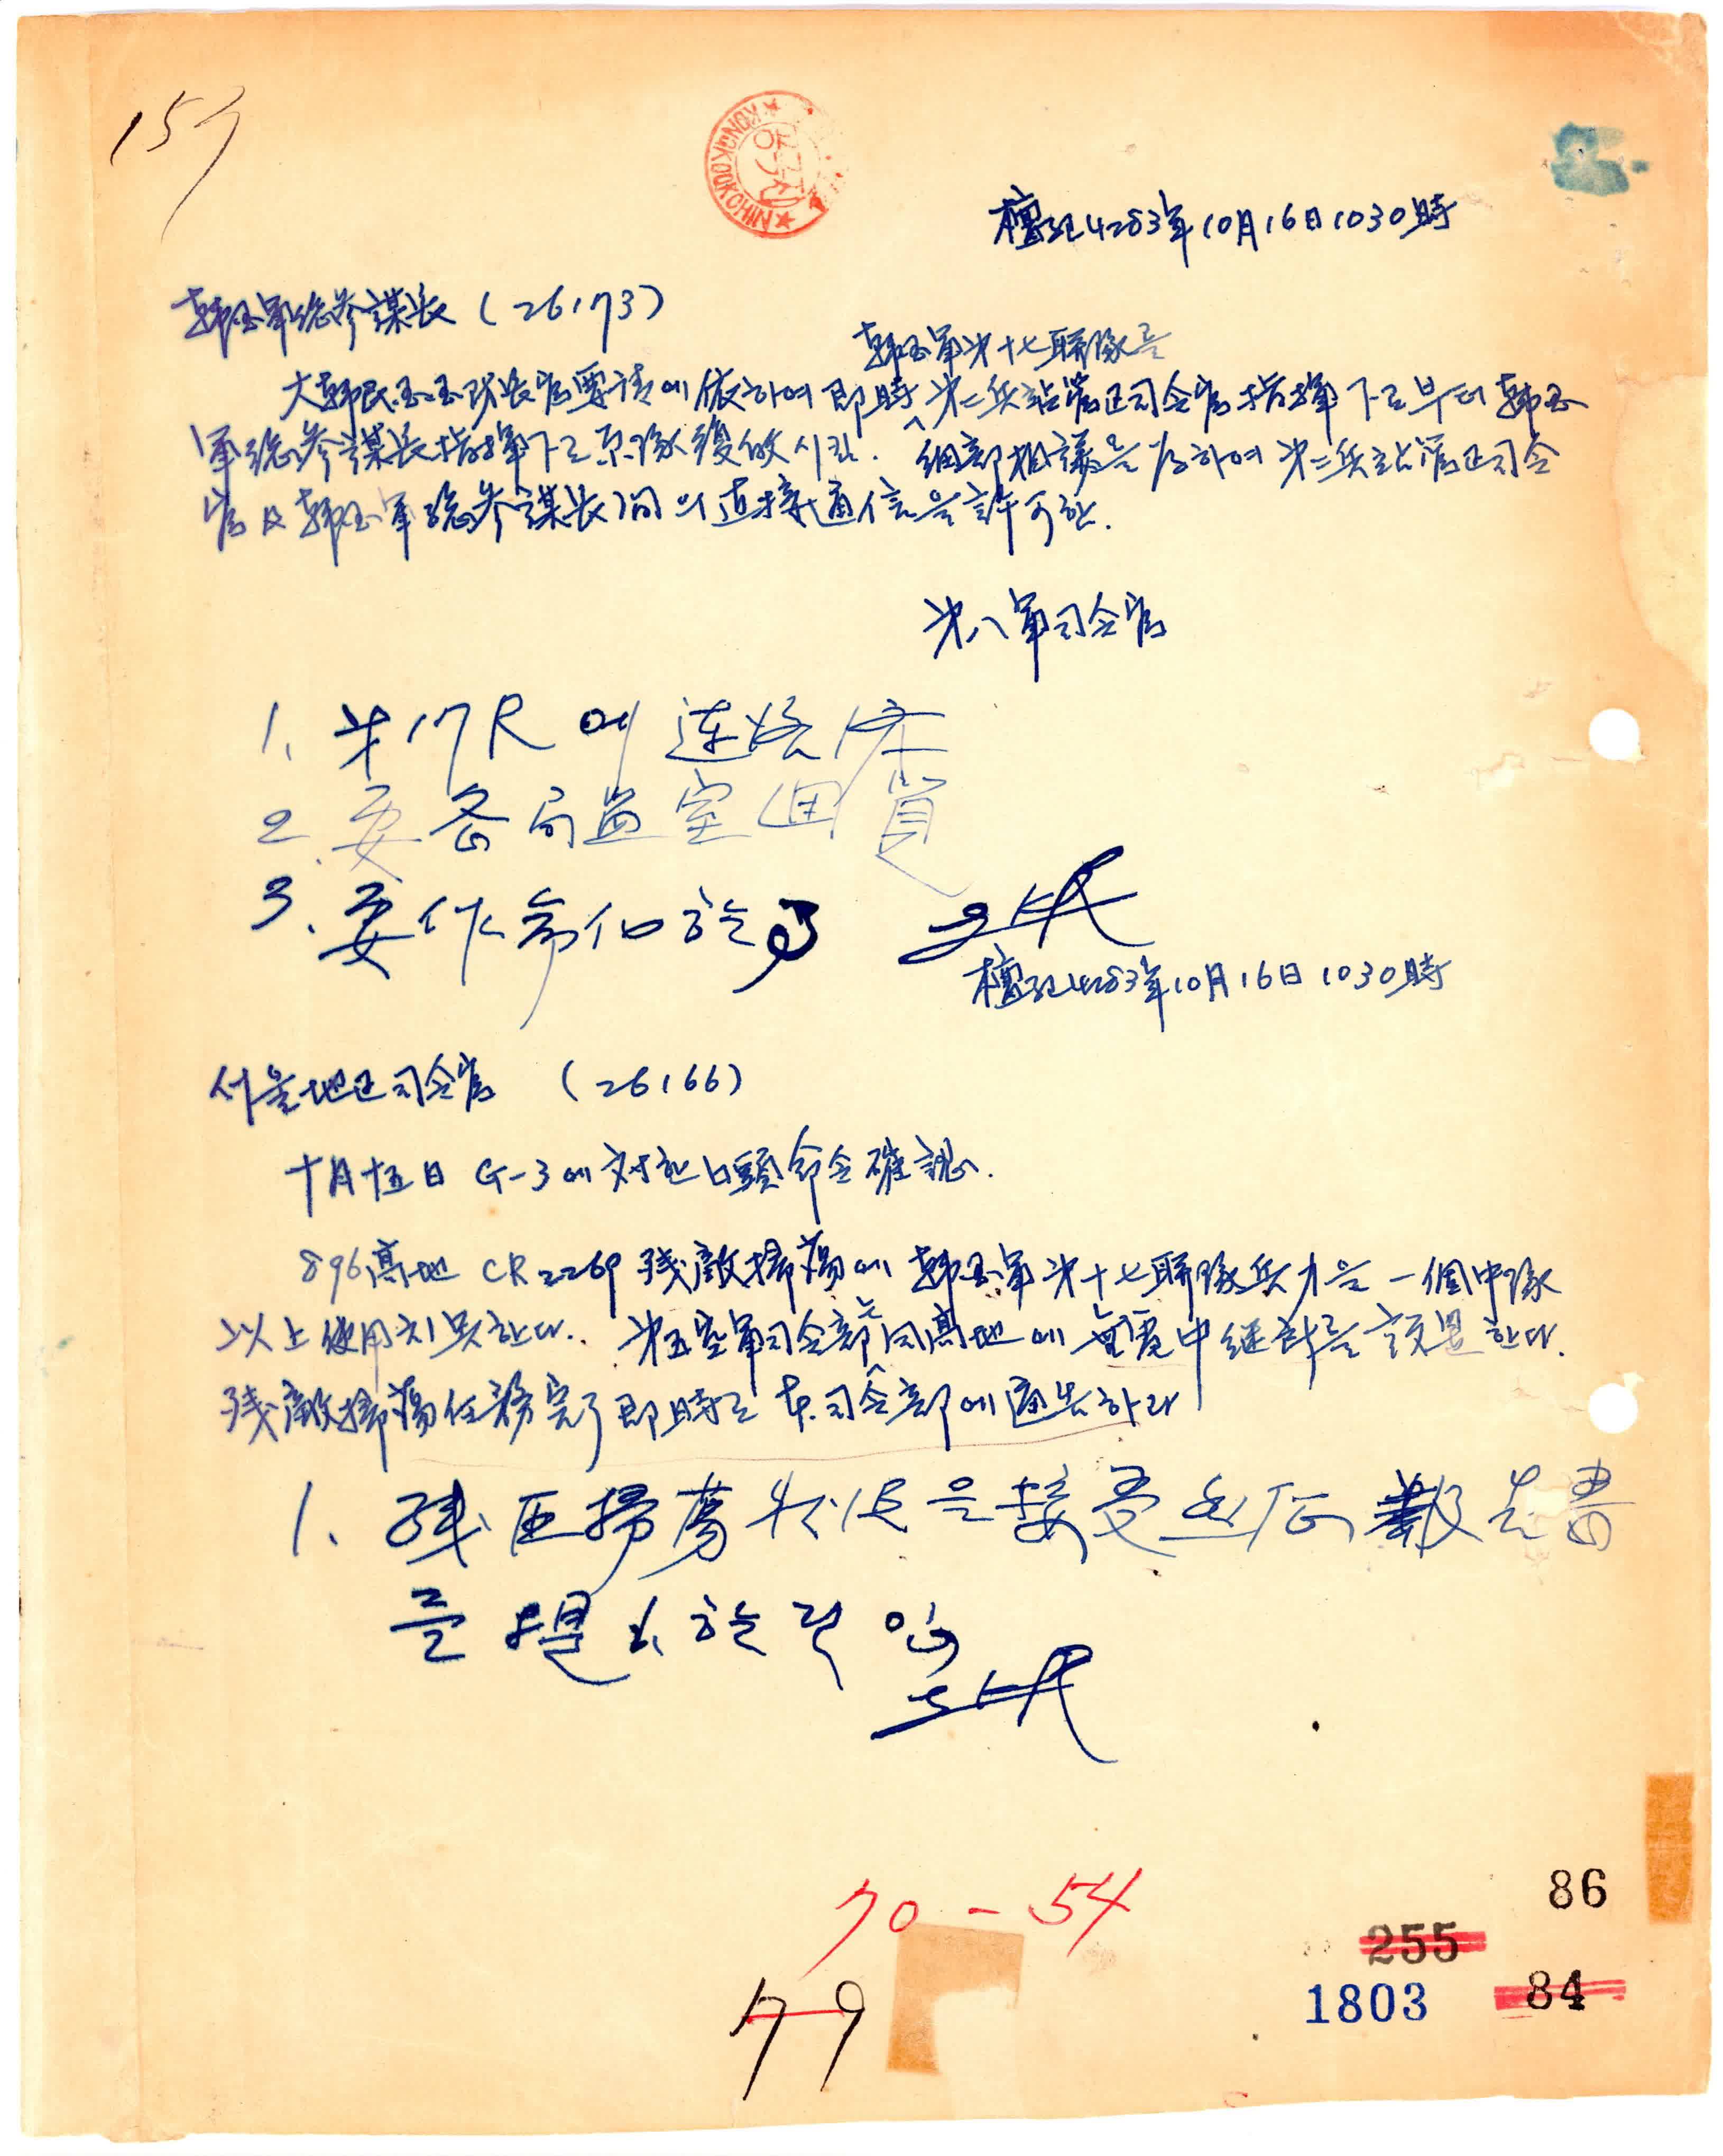 157
檀紀4283年10月16日1030時
韓國軍總參謀長 (26173)
韓國軍第十七聯隊를
大韓民國國防長官要請에 依하여 即時 第二兵站管區司令官 指揮下로부터 韓國
軍總參謀長 指揮下로 原隊復歸시킴. 細部相議를 爲하여 第二兵站管區司令
官及韓國軍總參謀長間의 直接通信을 許可함.
第八軍司令官
1. 第17R에 連絡
2. 要各局監室回覽
3. 要作命
檀紀4283年10月16日1030時
서울地區司令官 (26166)
十月十五日 G-3에 対한 口頭命令確認.
896高地 CR2269 残敵掃蕩에 韓國軍第十七聯隊兵力을 一個中隊
以上 使用치못한다. 第五空軍司令部는 同高地에 無電中継所를 設置한다.
残敵掃蕩任務完了即時로 本司令部에 通告하라
1. 残匪掃蕩 을 接受
를 提出
70-54
79
86
255
1803
84